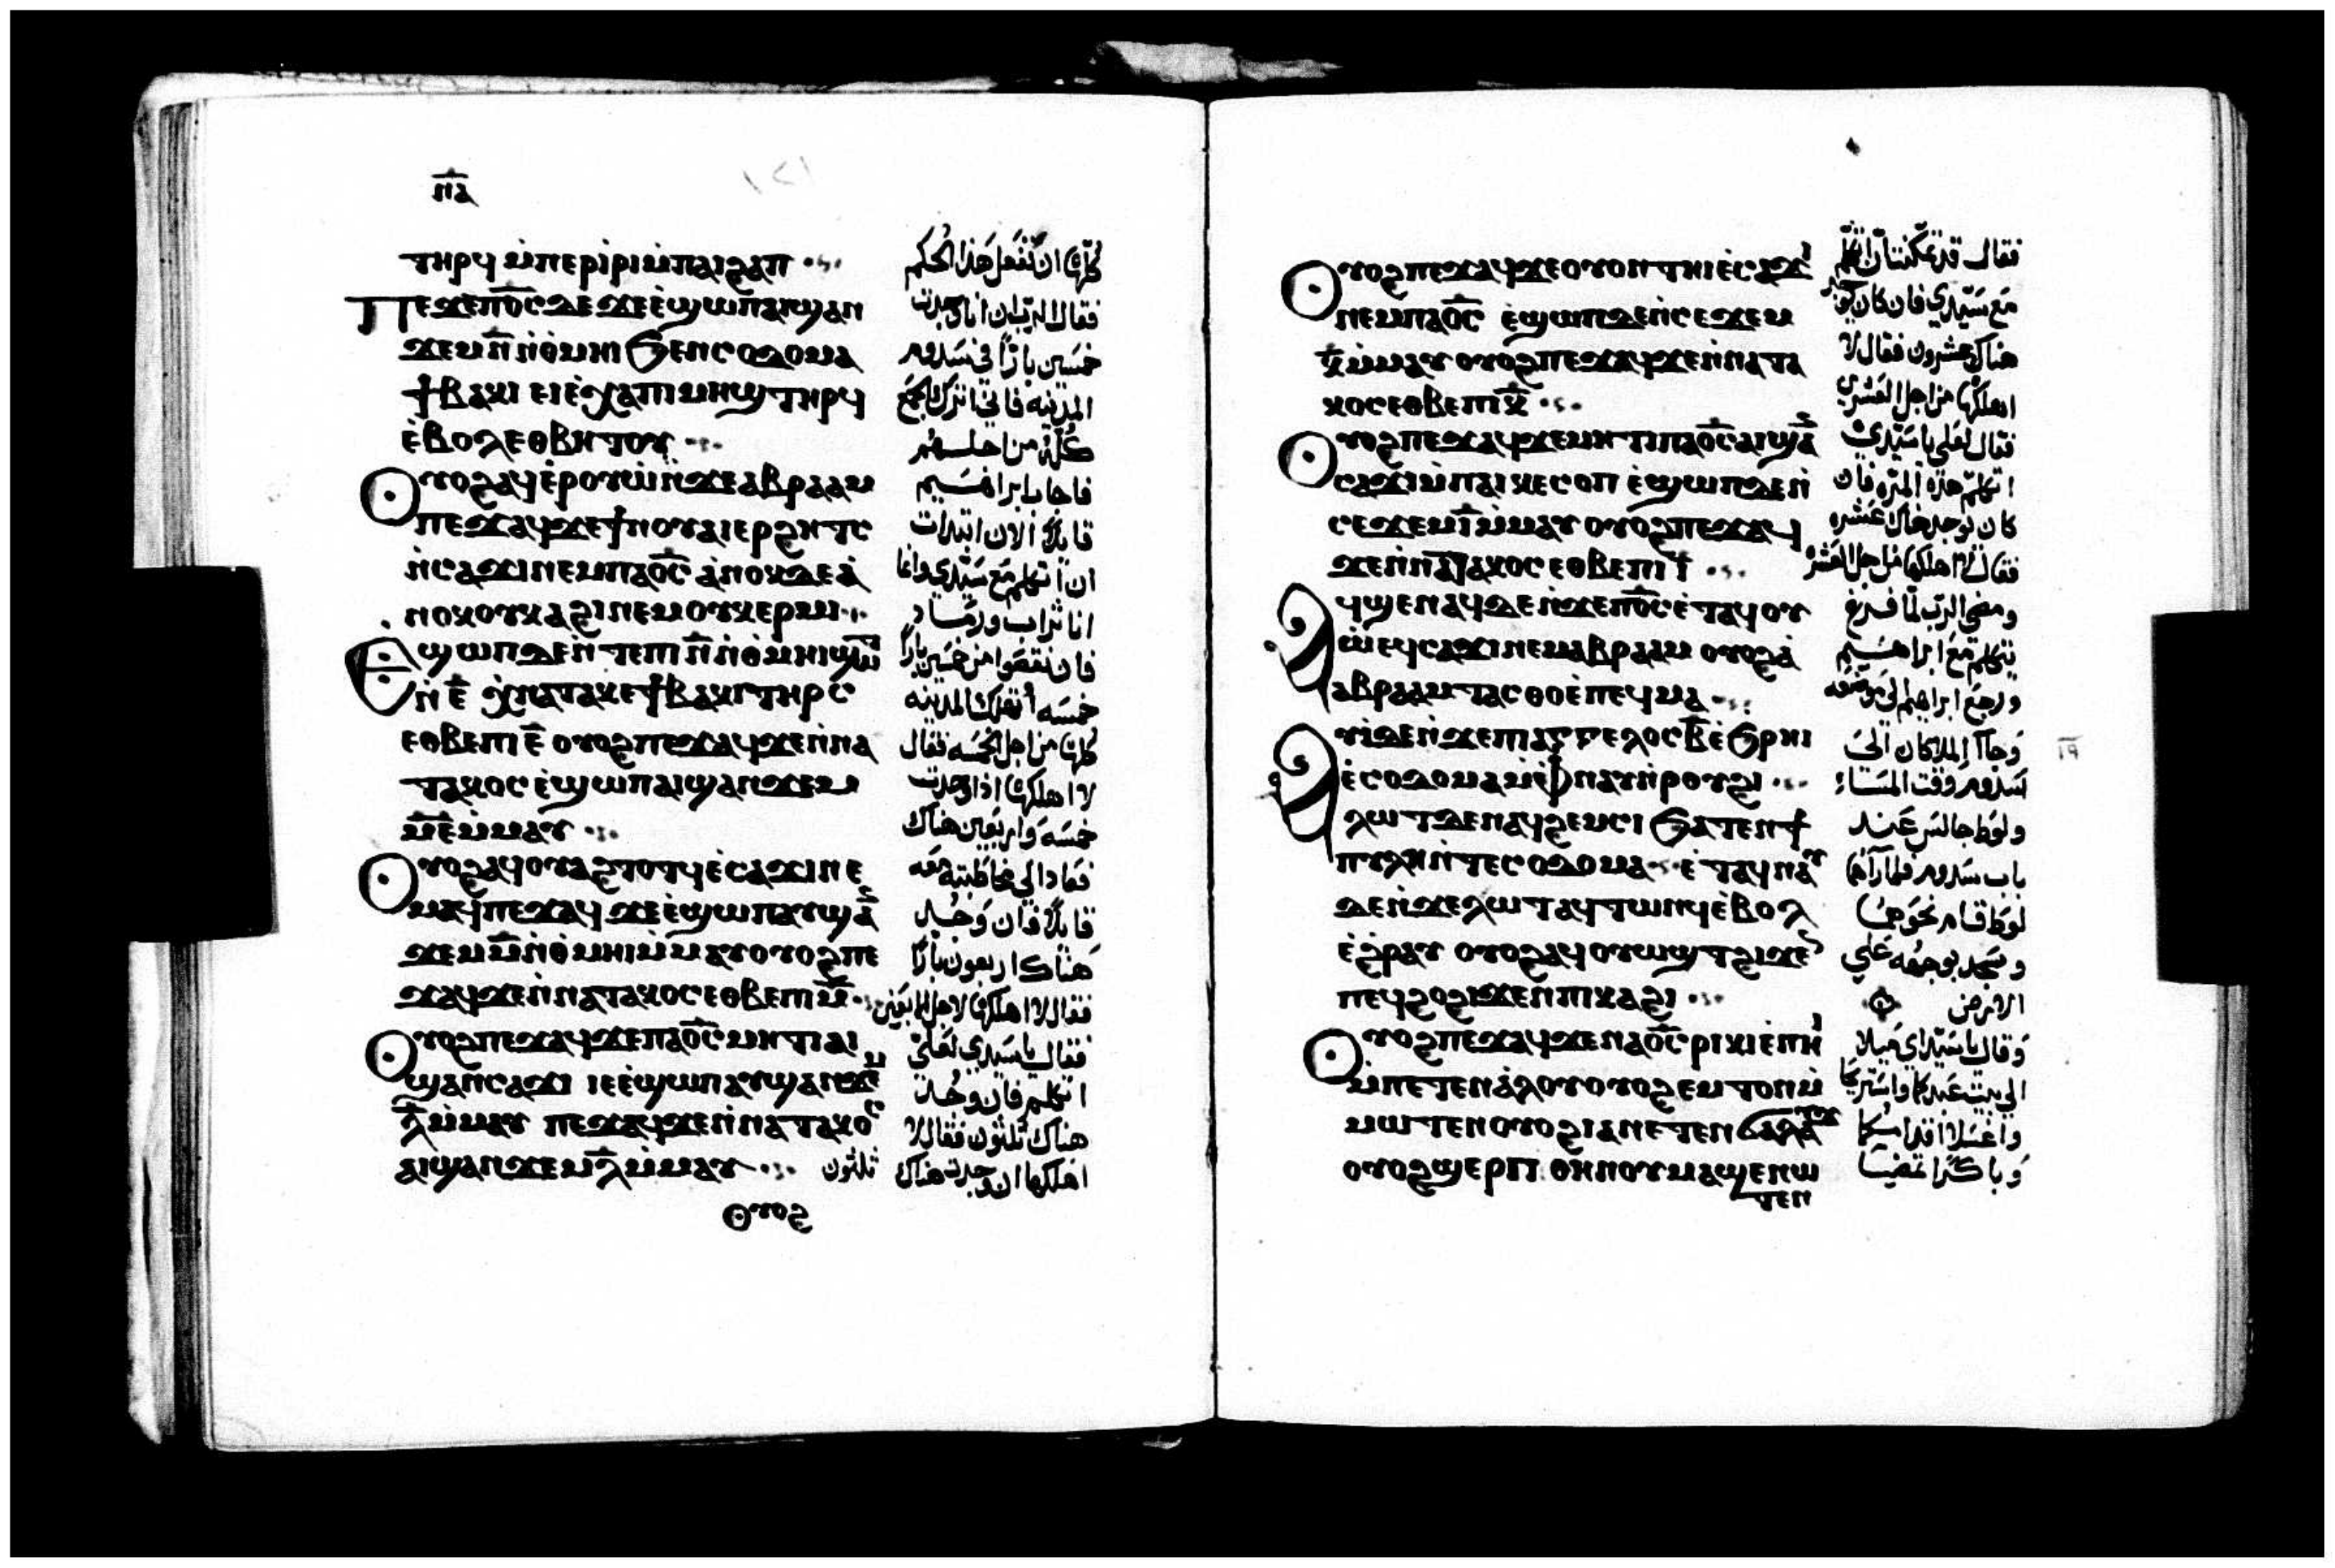 ⲛ̅ⲁ̅
ⲧⲏⲣϥ ⲙ̇ⲡⲉⲣⲓ̇ⲣⲓ ⲙ̇ⲡⲁⲓϩⲁⲡ
Ⲡⲉϫⲉ ⲡ︦ⲟ︦ⲥ︦ ⲇⲉ ϫⲉ ⲉ̇ϣⲱⲡ ⲁⲓϣⲁⲛ
ϫⲉⲙ ⲛ̅ ⲛ̇ⲑ̇ⲙⲏⲓ ϧⲉⲛ ⲥⲟⲇⲟⲙⲁ
ϯⲃⲁⲕⲓ ⲉⲓⲉ̇ⲭⲁ ⲡⲓⲙⲏϣ ⲧⲏⲣϥ
ⲉ̇ⲃⲟⲗ ⲉⲑⲃⲏⲧⲟⲩ
Ⲟⲩⲟϩ ⲁϥⲉ̇ⲣⲟⲩⲱ̇ ⲛ̇ϫⲉ ⲁⲃⲣⲁⲁⲙ
ⲡⲉϫⲁϥ ϫⲉ ϯⲛⲟⲩ ⲁⲓⲉⲣϩⲏⲧⲥ
ⲛ̇ⲥⲁϫⲓ ⲛⲉⲙ ⲡⲁⲟ̅ⲥ̅ ⲁ̇ⲛⲟⲕ ⲇⲉ ⲁ̇
ⲛⲟⲕ ⲟⲩⲕⲁϩⲓ ⲛⲉⲙ ⲟⲩⲕⲉⲣⲙⲓ
Ⲉϣⲱⲡ ⲇⲉ ⲛ̇ⲧⲉ ⲡⲓ ⲛ̅ ⲛ̇ⲑ̇ⲙⲏⲓ
ⲛ̇ ⲉ̅ ⲭ̇ⲛⲁⲧⲁⲕⲉ ϯⲃⲁⲕⲓ ⲧⲏⲣⲥ
ⲉⲑⲃⲉ ⲡⲓ ⲉ̅ ⲟⲩⲟϩ ⲡⲉϫⲁϥ ϫⲉ ⲛ̇ⲛⲁ
ⲧⲁⲕⲟⲥ ⲉ̇ϣⲱⲡ ⲁⲓϣⲁⲛϫⲉⲙ
ⲙ̅ⲉ̅ ⲙ̇ⲙⲁⲩ
Ⲟⲩⲟϩ ⲁϥⲟⲩⲁϩⲧⲟⲧϥ ⲉ̇ⲥⲁϫⲓ ⲛⲉ
ⲙⲁϥ ⲡⲉϫⲁϥ ϫⲉ ⲉ̇ϣⲱⲡ ⲁⲩϣⲁⲛ
ϫⲉⲙ ⲙ̅ ⲛ̇ⲑ̇ⲙⲏⲓ ⲙ̇ⲙⲁⲩ ⲟⲩⲟϩ ⲡⲉ
ϫⲁϥ ϫⲉ ⲛ̇ⲛⲁⲧⲁⲕⲟⲥ ⲉⲑⲃⲉ ⲡⲓ ⲙ̅
Ⲟⲩⲟϩ ⲡⲉϫⲁϥ ϫⲉ ⲡⲁⲟ̅ⲥ̅ ⲙⲏⲧⲓ ⲁⲓ
ϣⲁⲛⲥⲁϫⲓ ⲓⲉ ⲉ̇ϣⲱⲡ ⲁⲩϣⲁⲛϫⲉⲙ
ⲗ̅ ⲙ̇ⲙⲁⲩ ⲡⲉϫⲁϥ ϫⲉ ⲛ̇ⲛⲁⲧⲁⲕⲟⲥ
ⲁⲓϣⲁⲛϫⲉⲙ ⲗ̅ ⲙ̇ⲙⲁⲩ
Ⲟⲩⲟϩ
كلها ان تفعل هذا الحكم
فقال الرب ان انا وجدت
خمسين بارًا في سدوم
المدينه فاني اترك الجمع
كله من اجلهم
فاجاب ابراهيم
قايلًا الان ابتدات
ان اتكلم مع سيدي وانا
انا تراب ورماد
فان نقصوا من خمسين بارًا
خمسه أتهلك المدينه
كلها من اجل الخمسه فقال
لا اهلكها اذا وجدت
خمسه واربعين هناك
فعاد الي مخاطبته معه
قايلًا فان وجد
هناك اربعون بارًا
فقال لا اهلكها لاجل الاربعين
فقال يا سيدي لعلي
اتكلم فان وجد
هناك ثلثون فقال لا
اهلكها ان وجدت هناك ثلثون
Ⲟⲩⲟϩ ⲡⲉϫⲁϥ ϫⲉ ⲟⲩⲟⲛ ⲧⲏⲓ ⲉ̇ⲥⲁϫⲓ
ⲛⲉⲙ ⲡⲁⲟ̅ⲥ̅ ⲉ̇ϣⲱⲡ ⲇⲉ ⲛ̇ⲥⲉϫⲉⲙ
ⲕ̅ ⲙ̇ⲙⲁⲩ ⲟⲩⲟϩ ⲡⲉϫⲁϥ ϫⲉ ⲛ̇ⲛⲁⲧⲁ
ⲕⲟⲥ ⲉⲑⲃⲉ ⲡⲓ ⲕ̅
Ⲟⲩⲟϩ ⲡⲉϫⲁϥ ϫⲉ ⲙⲏⲧⲓ ⲡⲁⲟ̅ⲥ̅ ⲁⲓϣⲁⲛ
ⲥⲁϫⲓ ⲙ̇ⲡⲁⲓⲕⲉⲥⲟⲡ ⲉ̇ϣⲱⲡ ⲇⲉ ⲛ̇
ⲥⲉϫⲉⲙ ⲓ̅ ⲙ̇ⲙⲁⲩ ⲟⲩⲟϩ ⲡⲉϫⲁϥ
ϫⲉ ⲛ̇ⲛⲁⲧⲁⲕⲟⲥ ⲉⲑⲃⲉ ⲡⲓ ⲓ̅
Ⲁϥϣⲉⲛⲁϥ ⲇⲉ ⲛ̇ϫⲉ ⲡ︦ⲟ︦ⲥ︦ ⲉ̇ⲧⲁϥⲟⲩ
ⲱ̇ ⲉϥⲥⲁϫⲓ ⲛⲉⲙ ⲁⲃⲣⲁⲁⲙ ⲟⲩⲟϩ ⲁ̇
ⲁⲃⲣⲁⲁⲙ ⲧⲁⲥⲑⲟ ⲉ̇ⲡⲉϥⲙⲁ
Ⲁⲩⲓ̇ ⲇⲉ ⲛ̇ϫⲉ ⲡⲓⲁⲅⲅⲉⲗⲟⲥ ⲃ̅ ⲉ̇ϧⲣⲏⲓ
ⲉ̇ⲥⲟⲇⲟⲙⲁ ⲙ̇ⲫⲛⲁⲩ ⲛ̇ⲣⲟⲩϩⲓ
ⲗⲱⲧ ⲇⲉ ⲛⲁϥϩⲉⲙⲥⲓ ϧⲁⲧⲉⲛ ϯ
ⲡⲩⲗⲏ ⲛ̇ⲧⲉ ⲥⲟⲇⲟⲙⲁ ⲉ̇ⲧⲁϥⲛⲁⲩ
ⲇⲉ ⲛ̇ϫⲉ ⲗⲱⲧ ⲁϥⲧⲱⲛϥ ⲉ̇ⲃⲟⲗ
ⲉ̇ϩ̇ⲣⲁⲩ ⲟⲩⲟϩ ⲁϥⲟⲩⲱϣⲧ ϩⲓϫⲉⲛ
ⲡⲉϥϩⲟ ϩⲓϫⲉⲛ ⲡⲓⲕⲁϩⲓ
Ⲟⲩⲟϩ ⲡⲉϫⲁϥ ϫⲉ ⲛⲁⲟ̅ⲥ̅ ⲣⲓⲕⲓ ⲉ̇ⲡⲏⲓ
ⲙ̇ⲡⲉⲧⲉⲛⲁ̇ⲗⲟⲩ ⲟⲩⲟϩ ⲉⲙⲧⲟⲛ ⲙ̇
ⲙⲱⲧⲉⲛ ⲟⲩⲟϩ ⲓⲁ ⲛⲉⲧⲉⲛϭⲁⲗⲁⲩϫ
ⲟⲩⲟϩ ϣⲉⲣⲡ ⲑⲏⲛⲟⲩ ⲙⲁϣⲉⲛⲱ
ⲧⲉⲛ
مع سيدي فان كان
هناك عشرون فقال لا
اهلكها من اجل العشرين
فقال لعلي يا سيدي
اتكلم هذه المره فان
كان يوجد هناك عشره
فقال لا اهلكها من اجل العشره
ومضي الرب لما فرغ
يتكلم مع ابراهيم
ورجع ابراهيم الي موضعه
وجاآ الملاكان الي
سدوم وقت المساء
ولوط جالس عند
باب سدوم فلما رآهما
لوط قام نحوهما
وسجد بوجهه علي
الارض
وقال يا سيداي ميلا
الي بيت عبدكما واستريحا
واغسلا اقدامكما
وباكرًا تمضيا